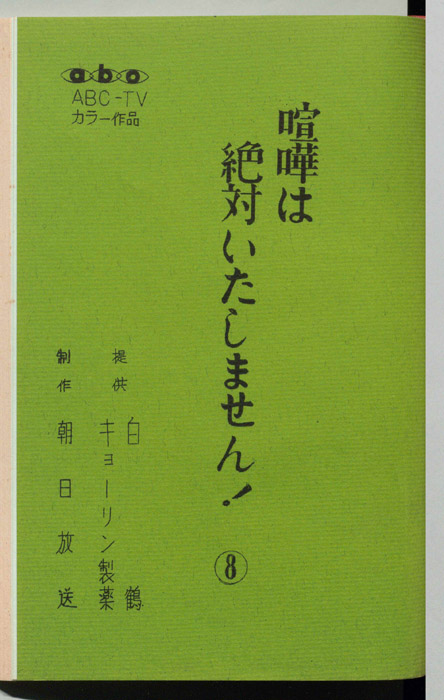 abc
ABC-TV
カラー作品
喧嘩は
絶対いたしません!
⑧
提供 白鶴
キョーリン製薬
制作 朝日放送